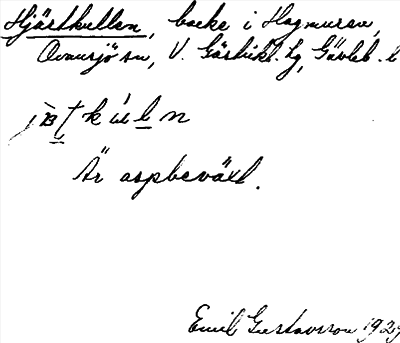 Hjärtkullen, backe i Hagmuren,
Ovansjö sn, V. Gästrikl. tg, Gävleb. l
Är aspbeväxt.
Emil Gustavsson 1929